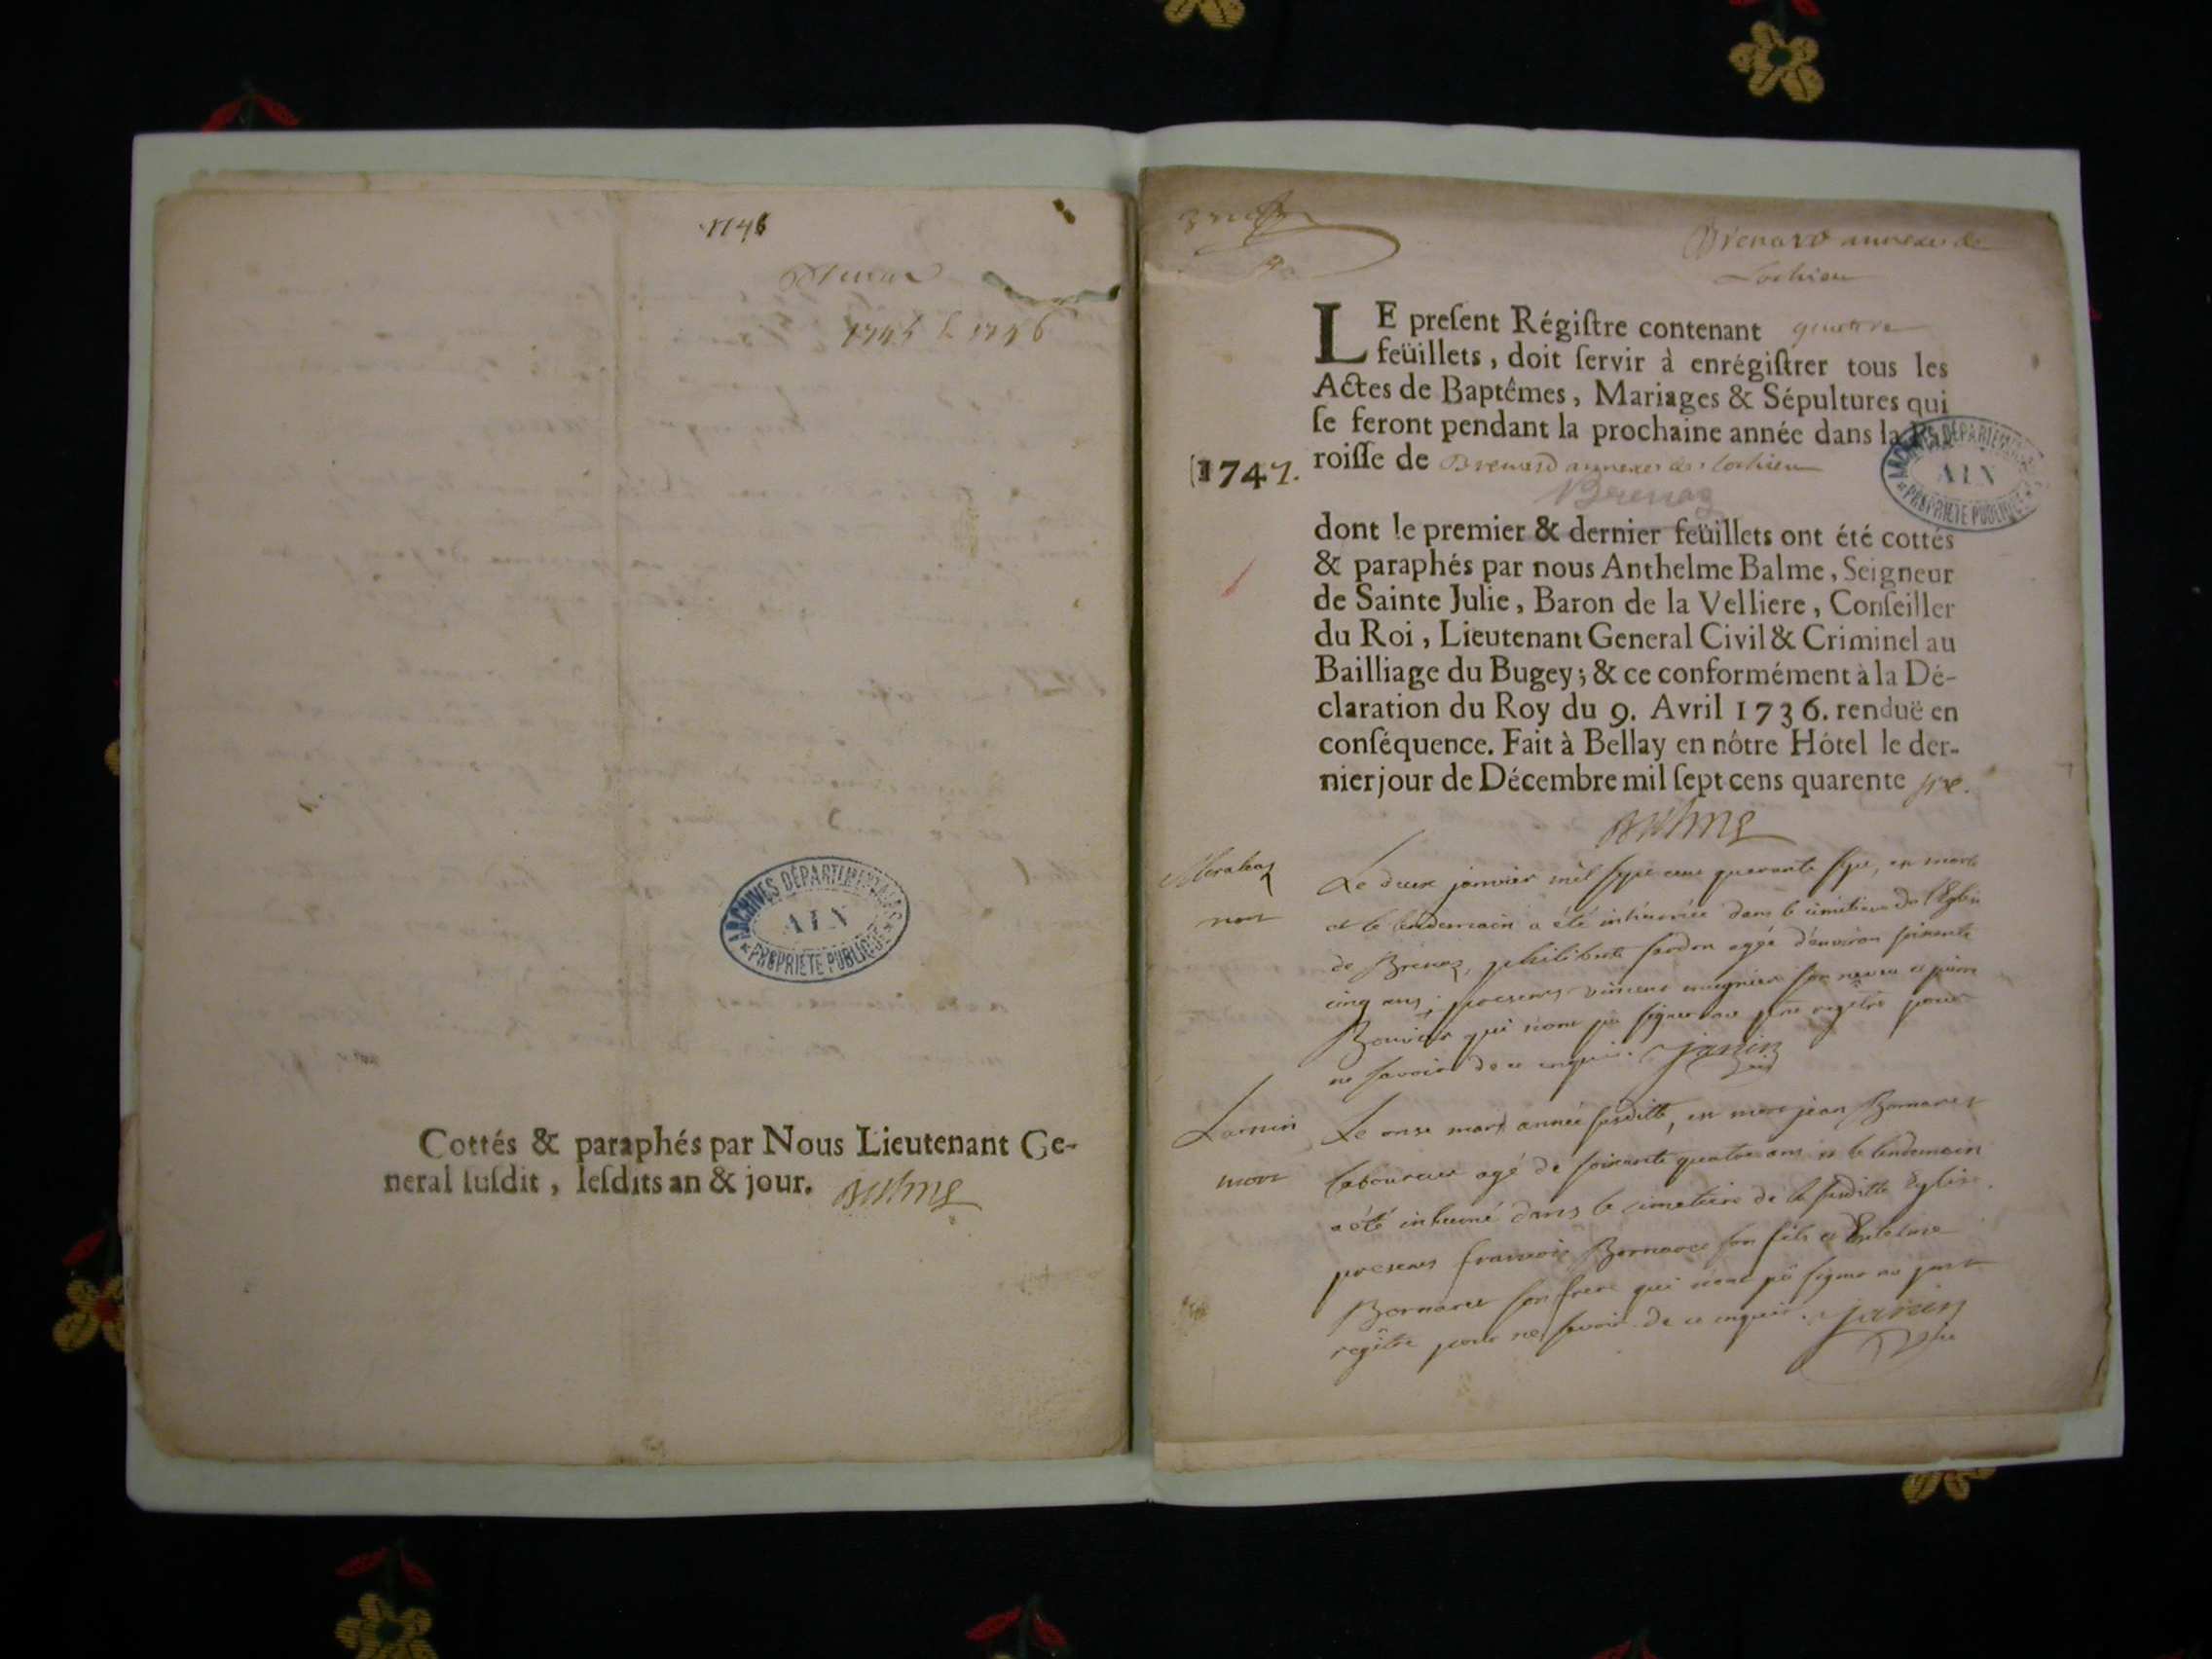 1746
1745 & 1746
ARCHIVES DÉPARTEMENTALES
AIN
PROPRIÉTÉ PUBLIQUE
Cottés & paraphés par Nous Lieutenant Ge-
neral susdit, lesdits an & jour.
Brenard annexes de
Lochieu
LE present Régistre contenant quattre
feüillets, doit servir à enrégistrer tous les
Actes de Baptêmes, Mariages & Sépultures qui
se feront pendant la prochaine année dans la Pa-
roisse de Brenard annexes de Lochieu
1747.
Brenaz
ARCHIVES DÉPARTEMENTALES
AIN
PROPRIÉTÉ PUBLIQUE
dont le premier & dernier feüillets ont été cottés
& paraphés par nous Anthelme Balme, Seigneur
de Sainte Julie, Baron de la Velliere, Conseiller
du Roi, Lieutenant General Civil & Criminel au
Bailliage du Bugey; & ce conformément à la Dé-
claration du Roy du 9. Avril 1736. renduë en
conséquence. Fait à Bellay en nôtre Hôtel le der-
nier jour de Décembre mil sept cens quarente six.
Balme
Le deux janvier mil sept cent quarante sept, est morte
et le lendemain a été inhumée dans le cimetiere de l'Eglise
de Brenaz, philiberte agée d'environ soixante
cinq ans; presens vincent son neveu et
qui n'ont pu signer au registre pour
ne savoir de ce enquis. Janin
Le onze mars année susditte, est mort jean Bornarel
mort
laboureur agé de soixante quatre ans et le lendemain
a été inhumé dans le cimetiere de la susditte Eglise.
presens francois Bornarel son fils et
Bornarel son frere qui n'ont pû signer au
regître pour ne savoir de ce enquis. Janin